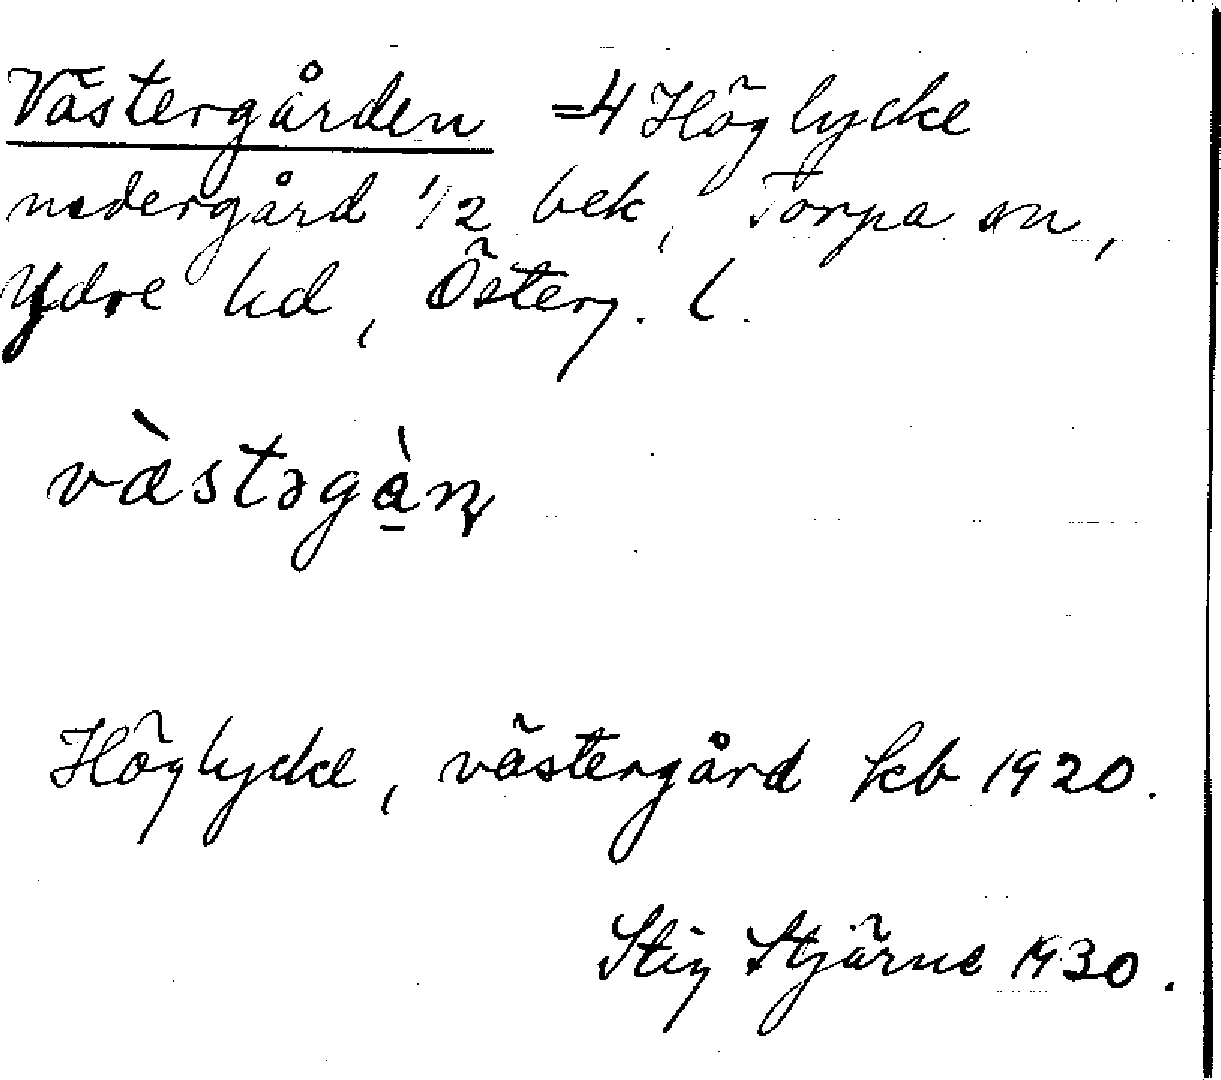 Västergården =4 Höglycke
nedergård 1/2 bek, Torpa sn,
Ydre hd, Österg. l.
væ̀stəgà̱ɳ
Höglycke, västergård kb 1920.
Stig Stjärne 1930.